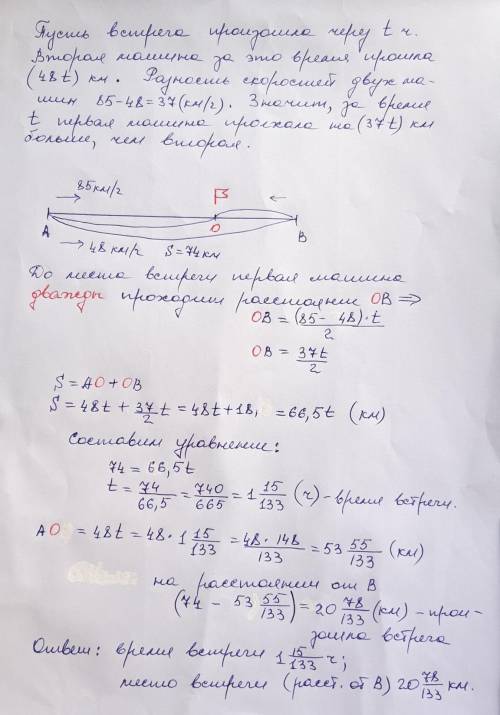 Пусть встреча произошла через t ч.
Вторая машина за это время прошла
(48t) км. Разность скоростей двух ма-
шин 85-48=37(км/ч). Значит, за время
t первая машина проехала на (37t) км
больше, чем вторая.
85км/ч
A O B
48 км/ч S=74км
До места встречи первая машина
дважды проходит расстояние OB ⇒
OB = (85-48)·t/2
OB = 37t/2
S=AO+OB
S=48t + 37/2 t = 48t+18, =66,5t (км)
Составим уравнение:
74 = 66,5t
t = 74/66,5 = 740/665 = 1 15/133 (ч) - время встречи.
AO = 48t = 48 · 1 15/133 = 48·148/133 = 53 55/133 (км)
на расстоянии от B
(74 - 53 55/133) = 20 78/133 (км) - прои-
зошла встреча
Ответ: время встречи 1 15/133 ч;
место встречи (расст. от B) 20 78/133 км.